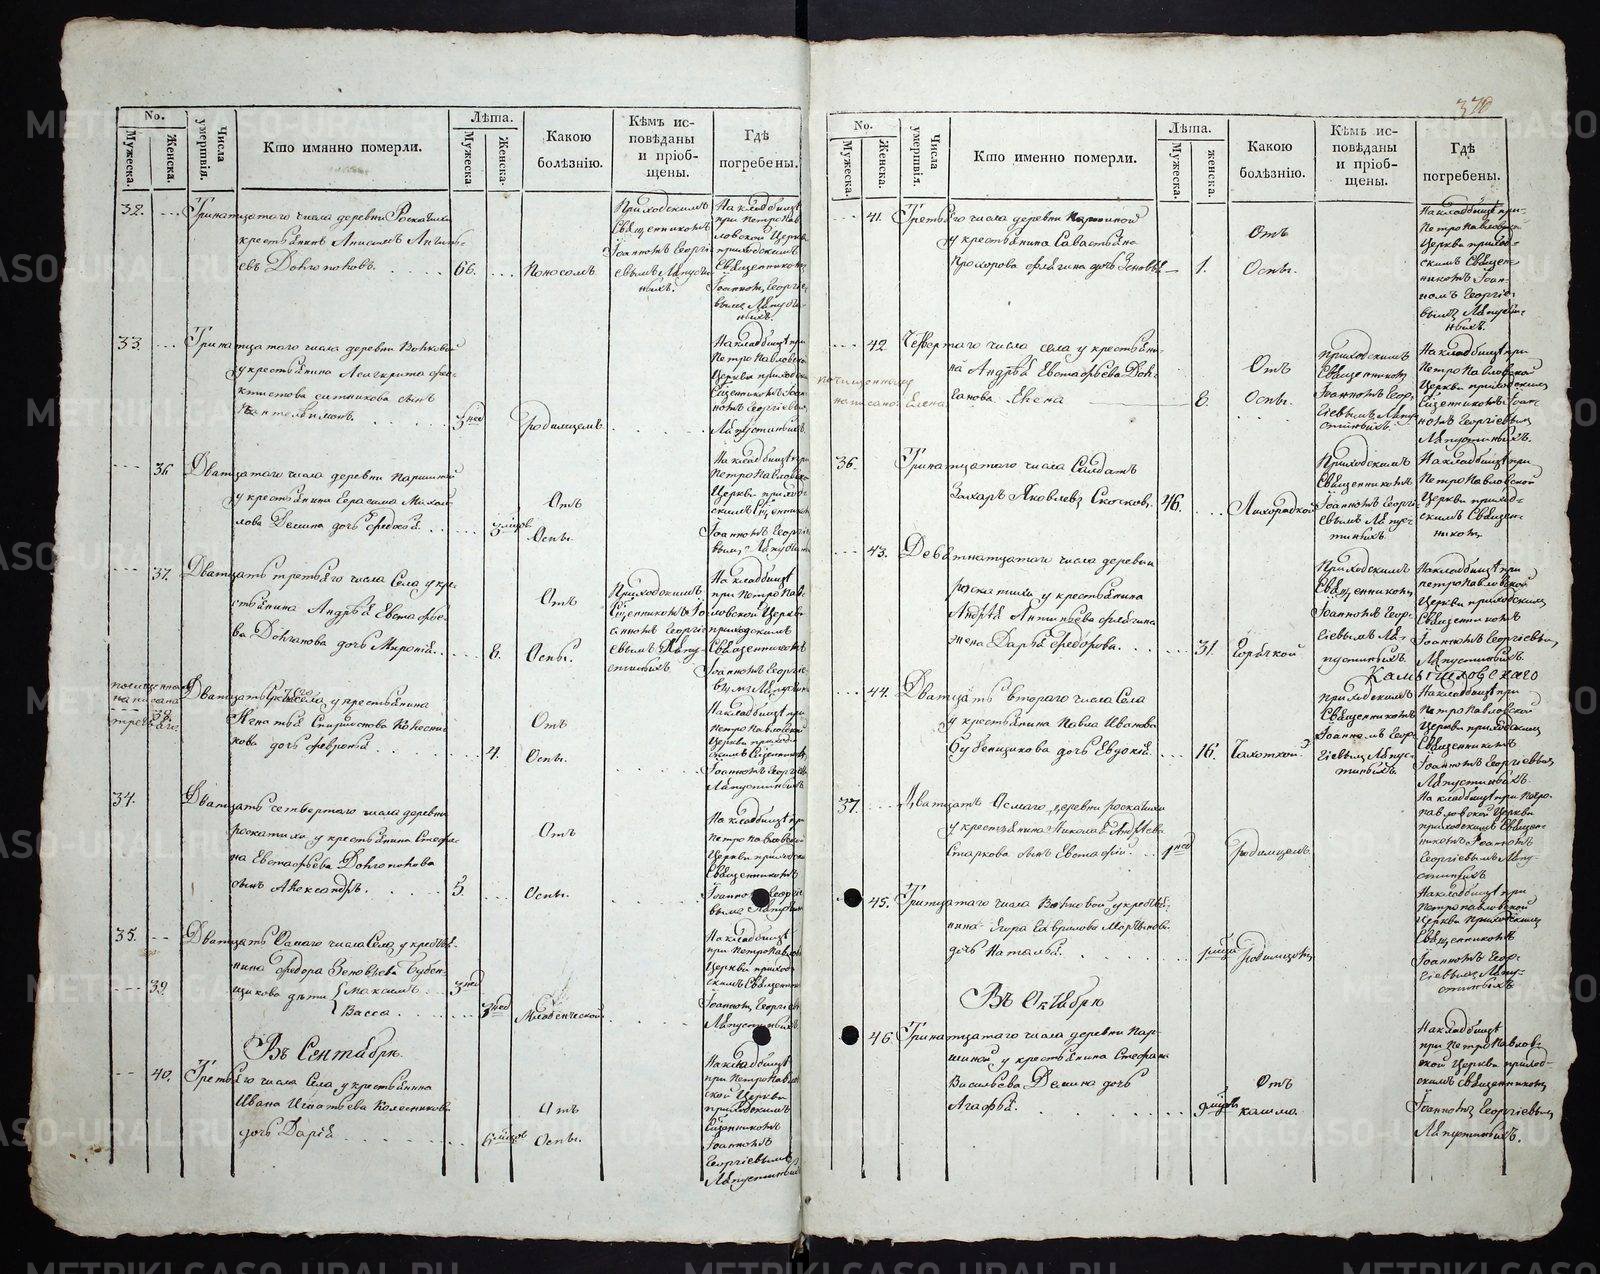 No.
Мужеска.
Женска.
Числа умертвія.
Кто имянно померли.
Лѣта.
Мужеска.
Женска.
Какою болѣзнію.
Кѣмъ ис-
повѣданы
и пріоб-
щены.
Гдѣ
погребены.
32.
Тринатцатаго числа деревни Роскатихи
крестьянинъ Анисимъ
евъ Долгополовъ.
66.
Поносомъ.
Приходскимъ
Священникомъ
Іоанномъ Георгі-
евымъ Лапусти-
ныхъ.
На кладбищѣ
при Петропав-
ловской Церкви
приходскимъ
Священникомъ
Іоанномъ Георгіе-
вымъ Лапусти-
ныхъ.
33.
Тринатцатаго числа деревни Волковой
у крестьянина
ктистова ситникова сынъ
Пантелеймонъ.
3 нед
Родимцемъ
На кладбищѣ при
Петропавловской
Церкви приходс
Сщенникомъ Іоан-
номъ Георгіевымъ
Лапустиныхъ.
36
Дватцатаго числа деревни Паршиной
у крестьянина Герасима Михай-
лова Демина дочь
3 мцов
Отъ
Оспы.
На кладбищѣ при
Петропавловской
Церкви приход-
скимъ Сщенник
Іоанномъ Георгіе
вымъ Лапустины
37.
Дватцать третьяго числа Села у кре-
стьянина Андрѣя Евстафье-
ва Долганова дочь Миропія.
8.
Отъ
Оспы.
Приходскимъ
Сщенникомъ Іо-
анномъ Георгі-
евымъ Лапу-
стиныхъ
На кладбищѣ
при Петропав-
ловской Церкви
приходскимъ
Священникомъ
Іоанномъ Георгіе-
вымъ Лапустин
38.
Дватцать села, у крестьянина
Игнатья Спиридонова Колесни-
кова дочь Февронія
4.
Отъ
Оспы.
На кладбищѣ при
Петропавловской
Церкви приход-
скимъ Сщенникомъ
Іоанномъ Георгіев
Лапустиныхъ
34.
Дватцать четвертаго числа деревни
роскатихи у крестьянина Стефа-
на Евстафьева Долгополова
сынъ Александръ.
5
Отъ
Оспы.
На кладбищѣ при
Петропавловской
Церкви приходски
Священникомъ
Іоанно Георгіе
вымъ Лапустин
35.
Дватцать Осмаго числа Села, у крестья-
нина Федора Зеновьева Бубен-
39.
щикова дѣти { Максимъ
3 нед
Васса
3 нед
Младенческой
На кладбищѣ
при Петропавлов
Церкви приход-
скимъ Священни
Іоанномъ Георгіев
Лапустиныхъ
Въ Сентябрѣ.
40.
Третьяго числа Села, у крестьянина
Ивана Игнатьева Колесникова
дочь Дарія
6 мцов
Отъ
Оспы.
На кладбищѣ
при Петропав
ской Церкви
приходскимъ
Сщенникомъ
Іоанномъ
Георгіевымъ
Лапустиных
370
No.
Мужеска.
Женска.
Числа умертвія.
Кто именно померли.
Лѣта.
Мужеска.
женска.
Какою
болѣзнію.
Кѣмъ ис-
повѣданы
и пріоб-
щены.
Гдѣ
погребены.
41.
Третьяго числа деревни Паршиной
у крестьянина Савастьяна
Прохорова дочь Зеновья
1.
Отъ
Оспы.
На кладбищѣ при-
Петропавловск
Церкви приход-
скимъ Священ-
никомъ Іоан-
номъ Георгіе-
вымъ Лапусти-
ныхъ.
42.
Четвертаго числа села у крестьяни-
на Андрѣя Евстафьева Дол-
ганова. Елена
8.
Отъ
Оспы.
Приходскимъ
Священникомъ
Іоанномъ Геор-
гіевымъ Лапу-
стиныхъ.
На кладбищѣ при
Петропавловской
Церкви приходскимъ
Сщенникомъ Іоан-
номъ Георгіевым
Лапустиныхъ.
36.
Тринатцатаго числа Солдатъ
Захаръ Яковлевъ Скочковъ,
46.
Лихорадкой
Приходскимъ
Священникомъ
Іоанномъ Георгі-
евымъ Лапус-
тиныхъ.
На кладбищѣ при
Петропавловской
Церкви приход-
скимъ Священ-
никомъ
43.
Девятнатцатаго числа деревни
роскатихи, у крестьянина
Андрѣя Антипьева
жена Дарья Федорова.
31.
Горячкой
Приходскимъ
Священникомъ
Іоанномъ Геор-
гіевымъ Ла-
пустиныхъ.
На кладбищѣ при
петропавловской
Церкви приходскимъ
Священникомъ
Іоанномъ Георгіевымъ
Лапустиныхъ.
44.
Дватцать втораго числа Села
у крестьянина Павла Иванова
Бубенщикова дочь Евдокія.
16.
Чахоткой
приходскимъ
Священникомъ
Іоанномъ Геор-
гіевымъ Лапус-
тиныхъ.
На кладбищѣ при
Петропавловской
Церкви приходскимъ
Священникомъ
Іоанномъ Георгіевымъ
Лапустиныхъ.
37.
Дватцать Осмаго, деревни роскатихи
у крестьянина Николая Андрѣева
Старкова сынъ Евстафій.
1 нед
Родимцемъ.
На кладбищѣ при Петро-
павловской Церкви
приходскимъ Священ-
никомъ Іоанномъ
Георгіевымъ Лапу-
стиныхъ
45.
Тритцатаго числа Волковой, у крестья-
нина Егора Гаврилова Мартынова
дочь Наталья.
Родимцемъ
На кладбищѣ при
Петропавловской
Церкви Приходскимъ
Священникомъ
Іоанномъ Геор-
гіевымъ Лапу-
стиныхъ
Въ Октябрѣ
46.
Тринатцатаго числа деревни Пар-
шиной у крестьянина Стефана
Васильева Демина дочь
Агафья.
9 мцов
Отъ
кашля
На кладбищѣ
при Петропавлов-
ской Церкви приход-
скимъ священникомъ
Іоанномъ Георгіевымъ
Лапустиныхъ.
METRIKI.GASO-URAL.RU